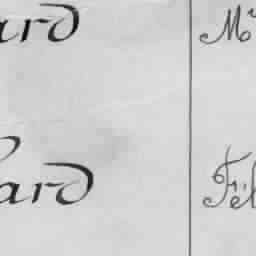 ard Mr
ard Fél